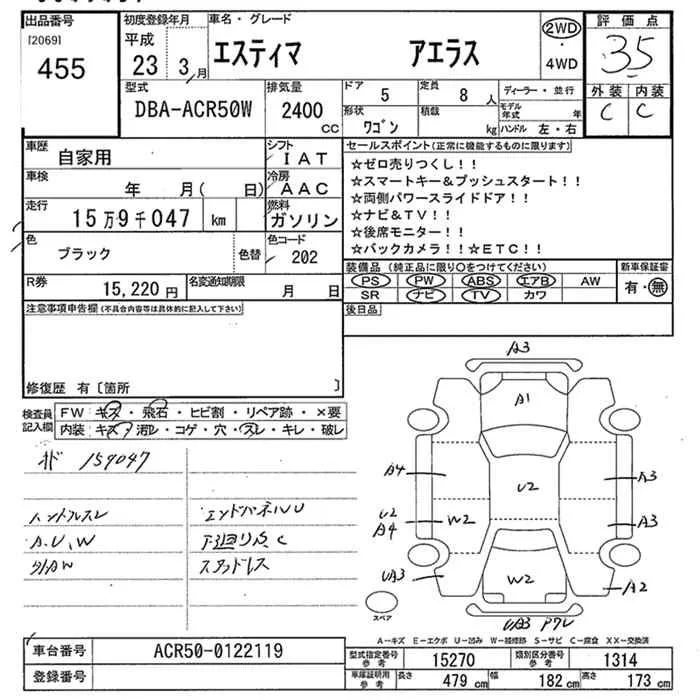 出品番号 初度登録年月 車名・グレード 評価点
[2069] 平成 エスティマ アエラス 2WD ・ 4WD 3.5
455 23 3月 外装 内装
型式 排気量 ドア 5 定員 8人 ディーラー・並行 C C
DBA-ACR50W 2400cc 形状 ワゴン 積載 kg モデル年式 年
ハンドル 左・右
車歴 自家用 シフト IAT セールスポイント(正常に機能するものに限ります)
車検 年 月( 日) 冷房 AAC
走行 15万9千047 km 燃料 ガソリン
色 ブラック 色替 色コード 202
☆ゼロ売りつくし!!
☆スマートキー&プッシュスタート!!
☆両側パワースライドドア!!
☆ナビ&TV!!
☆後席モニター!!
☆バックカメラ!!☆ETC!!
R券 15,220円 名変通知期限 月 日
装備品 (純正品に限り○をつけてください) 新車保証書
PS PW ABS エアB AW 有・無
SR ナビ TV カワ
後日品
注意事項申告欄(不具合内容等は具体的に記入して下さい)
修復歴 有〔箇所 〕
検査員記入欄 FW キズ・飛石・ヒビ割・リペア跡・×要
内装 キズ・汚レ・コゲ・穴・スレ・キレ・破レ
オド 159047
ハンドルスレ エンドパネルU
A.U、W 下廻りS C
外AW スタッドレス
A3
A1
A4 U2 A3
U2 A4 W2 A3
UA3 W2 A2
UA3 Pワレ
スペア
A-キズ E-エクボ U-凹み W-補修跡 S-サビ C-腐食 XX-交換済
車台番号 ACR50-0122119 型式指定番号 参考 15270 類別区分番号 参考 1314
登録番号 車庫証明用 参考 長さ 479cm 幅 182cm 高さ 173cm